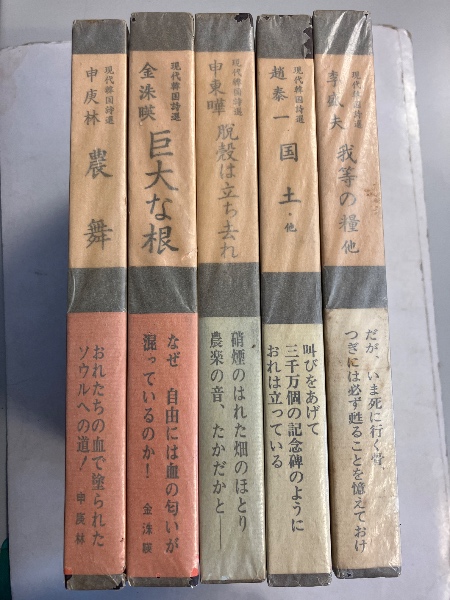 現代韓国詩選
申庚林
農舞
おれたちの血で塗られた
ソウルへの道!
申庚林
現代韓国詩選
金洙暎
巨大な根
なぜ 自由には血の匂いが
混っているのか!
金洙暎
現代韓国詩選
申東曄
脱殻は立ち去れ
硝煙のはれた畑のほとり
農楽の音、たかだかと――
現代韓国詩選
趙泰一
国土・他
叫びをあげて
三千万個の記念碑のように
おれは立っている
現代韓国詩選
李盛夫
我等の糧 他
だが、いま死に行く骨、
つぎには必ず甦ることを憶えておけ